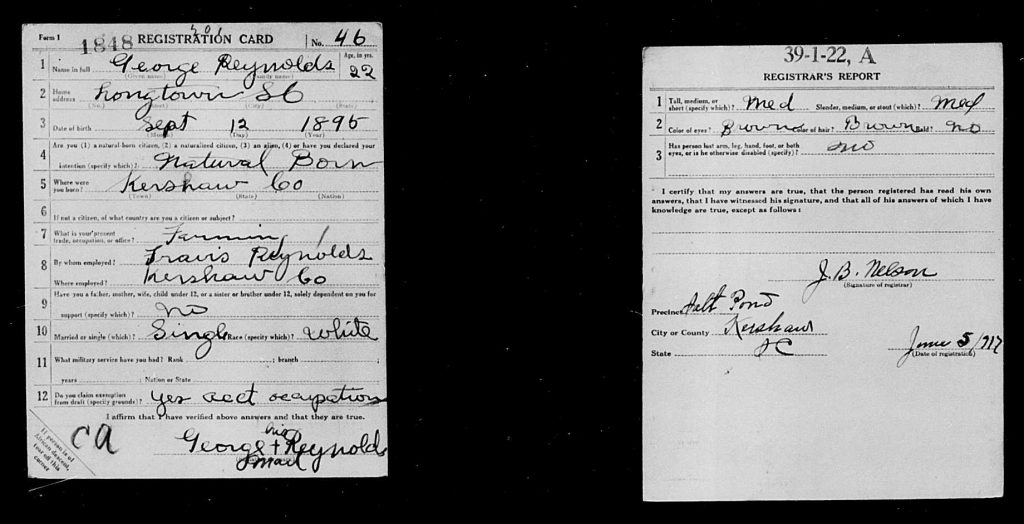 Form 1 1848 REGISTRATION CARD No. 46
1 Name in full George Reynolds Age, in yrs. 22
(Given name) (Family name)
2 Home address Longtown SC
(No.) (Street) (City) (State)
3 Date of birth Sept 12 1895
(Month) (Day) (Year)
4 Are you (1) a natural-born citizen, (2) a naturalized citizen, (3) an alien, (4) or have you declared your
intention (specify which)? Natural Born
5 Where were you born? Kershaw Co
(Town) (State) (Nation)
6 If not a citizen, of what country are you a citizen or subject?
7 What is your present trade, occupation, or office? Farming
8 By whom employed? Travis Reynolds
Where employed? Kershaw Co
9 Have you a father, mother, wife, child under 12, or a sister or brother under 12, solely dependent on you for
support (specify which)? no
10 Married or single (which)? Single Race (specify which)? White
11 What military service have you had? Rank ; branch
years ; Nation or State
12 Do you claim exemption from draft (specify grounds)? Yes acct occupation
I affirm that I have verified above answers and that they are true.
George his + mark Reynolds
If person is of
African descent,
tear off this
corner
Ca
39-1-22, A
REGISTRAR'S REPORT
1 Tall, medium, or short (specify which)? Med Slender, medium, or stout (which)? Med
2 Color of eyes? Brown Color of hair? Brown Bald? no
3 Has person lost arm, leg, hand, foot, or both
eyes, or is he otherwise disabled (specify)? no
I certify that my answers are true, that the person registered has read his own
answers, that I have witnessed his signature, and that all of his answers of which I have
knowledge are true, except as follows:
J. B. Nelson
(Signature of registrar)
Precinct Salt Pond
City or County Kershaw
State SC
June 5/1917
(Date of registration)